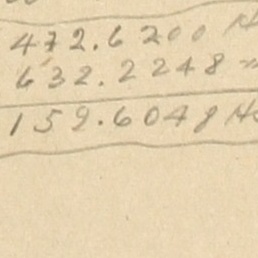 472.6200
632.2248
159.6048